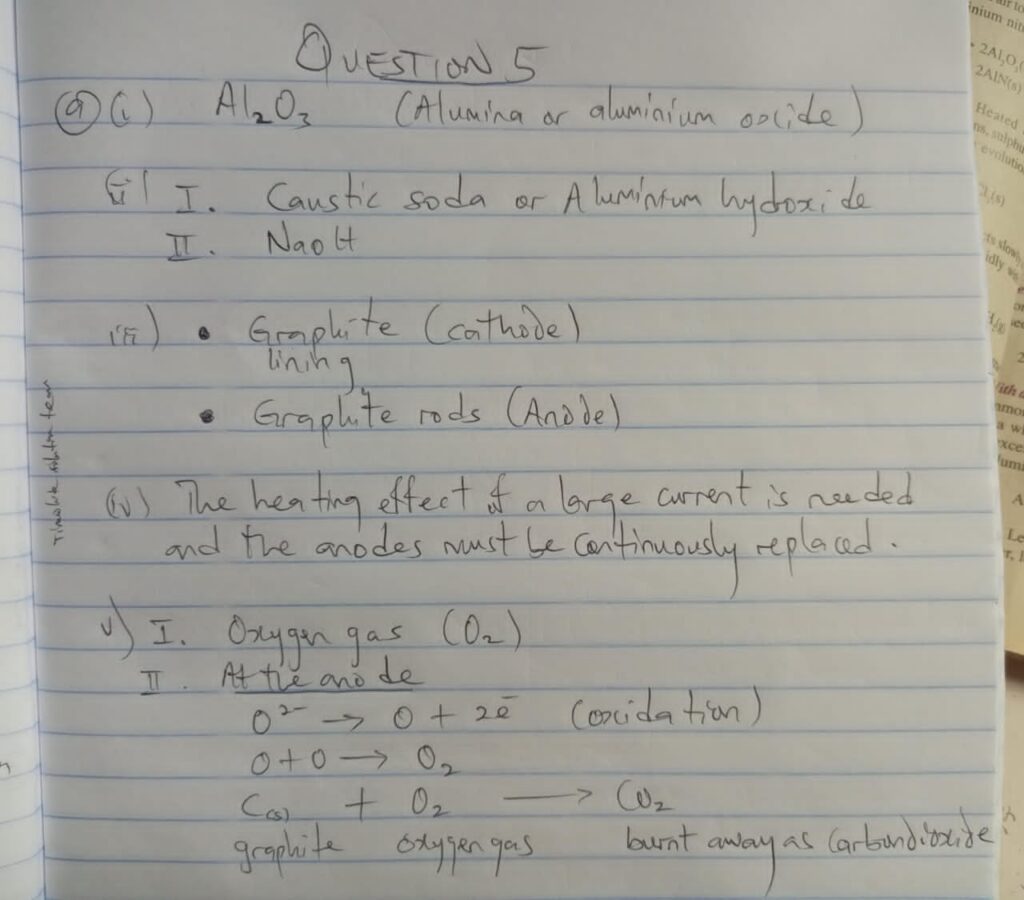 QUESTION 5
(a) (i) Al₂O₃ (Alumina or aluminium oxide)
(ii) I. Caustic soda or Aluminium hydroxide
II. NaoH
(iii) • Graphite (cathode)
lining
• Graphite rods (Anode)
(iv) The heating effect of a large current is needed
and the anodes must be continuously replaced.
v) I. Oxygen gas (O₂)
II. At the anode
O²⁻ → O + 2e⁻ (oxidation)
O + O → O₂
C(s) + O₂ → CO₂
graphite oxygen gas burnt away as Carbondioxide
inium
2Al₂O₃(
2AlN(s)
Heated
evolutio